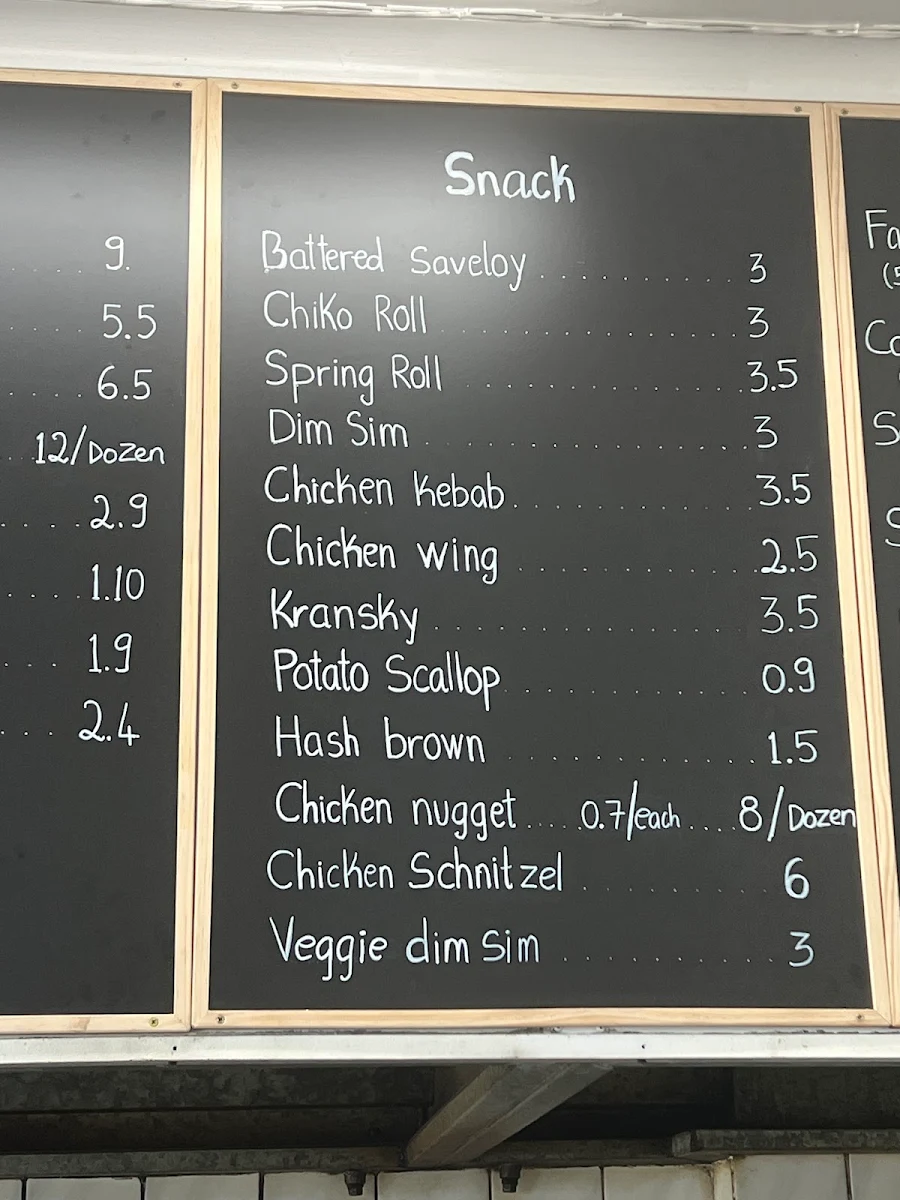 9.
5.5
6.5
12/Dozen
2.9
1.10
1.9
2.4
Snack
Battered Saveloy 3
Chiko Roll 3
Spring Roll 3.5
Dim Sim 3
Chicken kebab 3.5
Chicken wing 2.5
Kransky 3.5
Potato Scallop 0.9
Hash brown 1.5
Chicken nugget 0.7/each 8/Dozen
Chicken Schnitzel 6
Veggie dim Sim 3